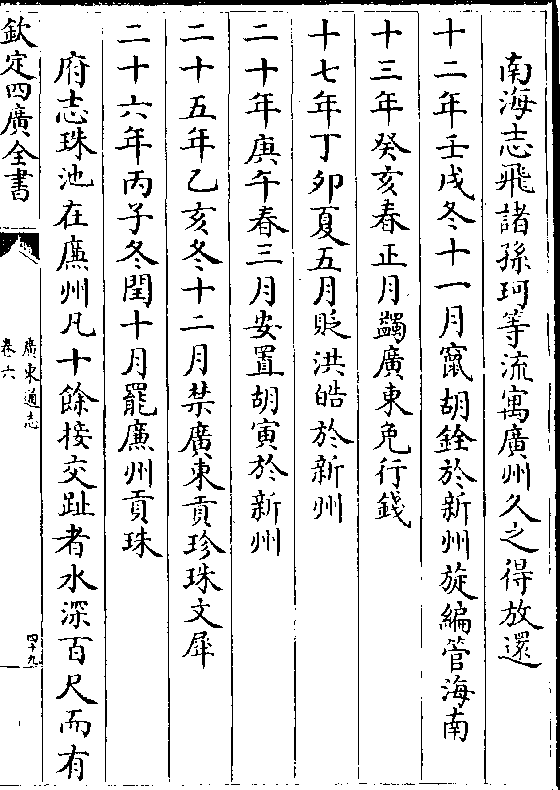 南海志飛諸孫珂等流寓廣州久之得放還
十二年壬戌冬十一月竄胡銓於新州旋編管海南
十三年癸亥春正月蠲廣東免行錢
十七年丁卯夏五月貶洪皓於新州
二十年庚午春三月安置胡寅於新州
二十五年乙亥冬十二月禁廣東貢珍珠文犀
二十六年丙子冬閏十月罷亷州貢珠
府志珠池在亷州凡十餘接交趾者水深百尺而有
欽定四庫全書
廣東通志
卷六
四十九